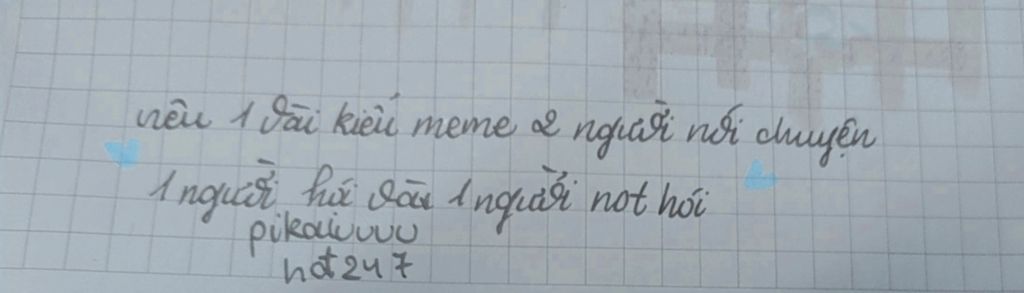 nêu 1 vài kiểu meme 2 người nói chuyện
1 người hói và 1 người not hói
pikaiuuuu
hot 247